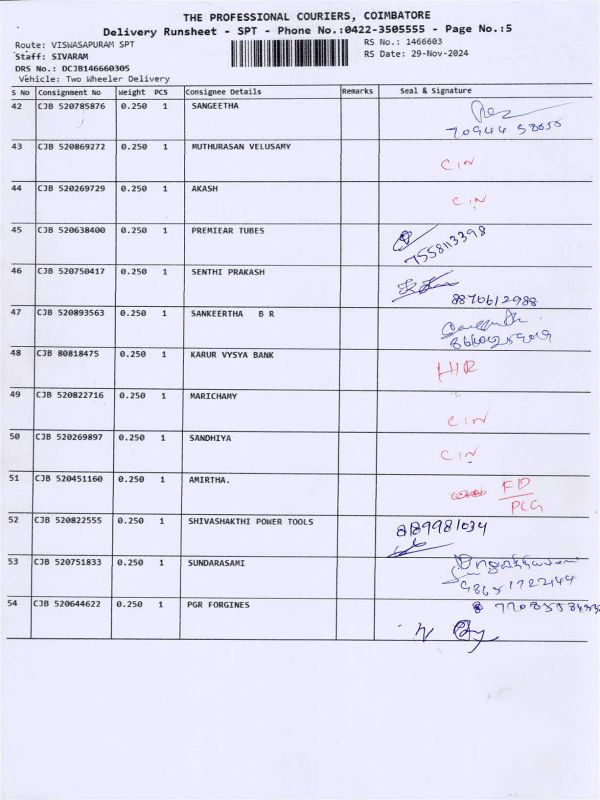 THE PROFESSIONAL COURIERS, COIMBATORE
Delivery Runsheet - SPT - Phone No.:0422-3505555 - Page No.:5
Route: VISWASAPURAM SPT RS No.: 1466603
Staff: SIVARAM RS Date: 29-Nov-2024
DRS No.: DCJB146660305
Vehicle: Two Wheeler Delivery
S No Consignment No Weight PCS Consignee Details Remarks Seal & Signature
42 CJB 520785876 0.250 1 SANGEETHA
43 CJB 520869272 0.250 1 MUTHURASAN VELUSAMY
CIN
44 CJB 520269729 0.250 1 AKASH
CIN
45 CJB 520638400 0.250 1 PREMIEAR TUBES
7558113398
46 CJB 520750417 0.250 1 SENTHI PRAKASH
8870612988
47 CJB 520893563 0.250 1 SANKEERTHA B R
48 CJB 80818475 0.250 1 KARUR VYSYA BANK
HR
49 CJB 520822716 0.250 1 MARICHAMY
CIN
50 CJB 520269897 0.250 1 SANDHIYA
CIN
51 CJB 520451160 0.250 1 AMIRTHA.
FD
PCG
52 CJB 520822555 0.250 1 SHIVASHAKTHI POWER TOOLS
8189981034
53 CJB 520751833 0.250 1 SUNDARASAMI
54 CJB 520644622 0.250 1 PGR FORGINES